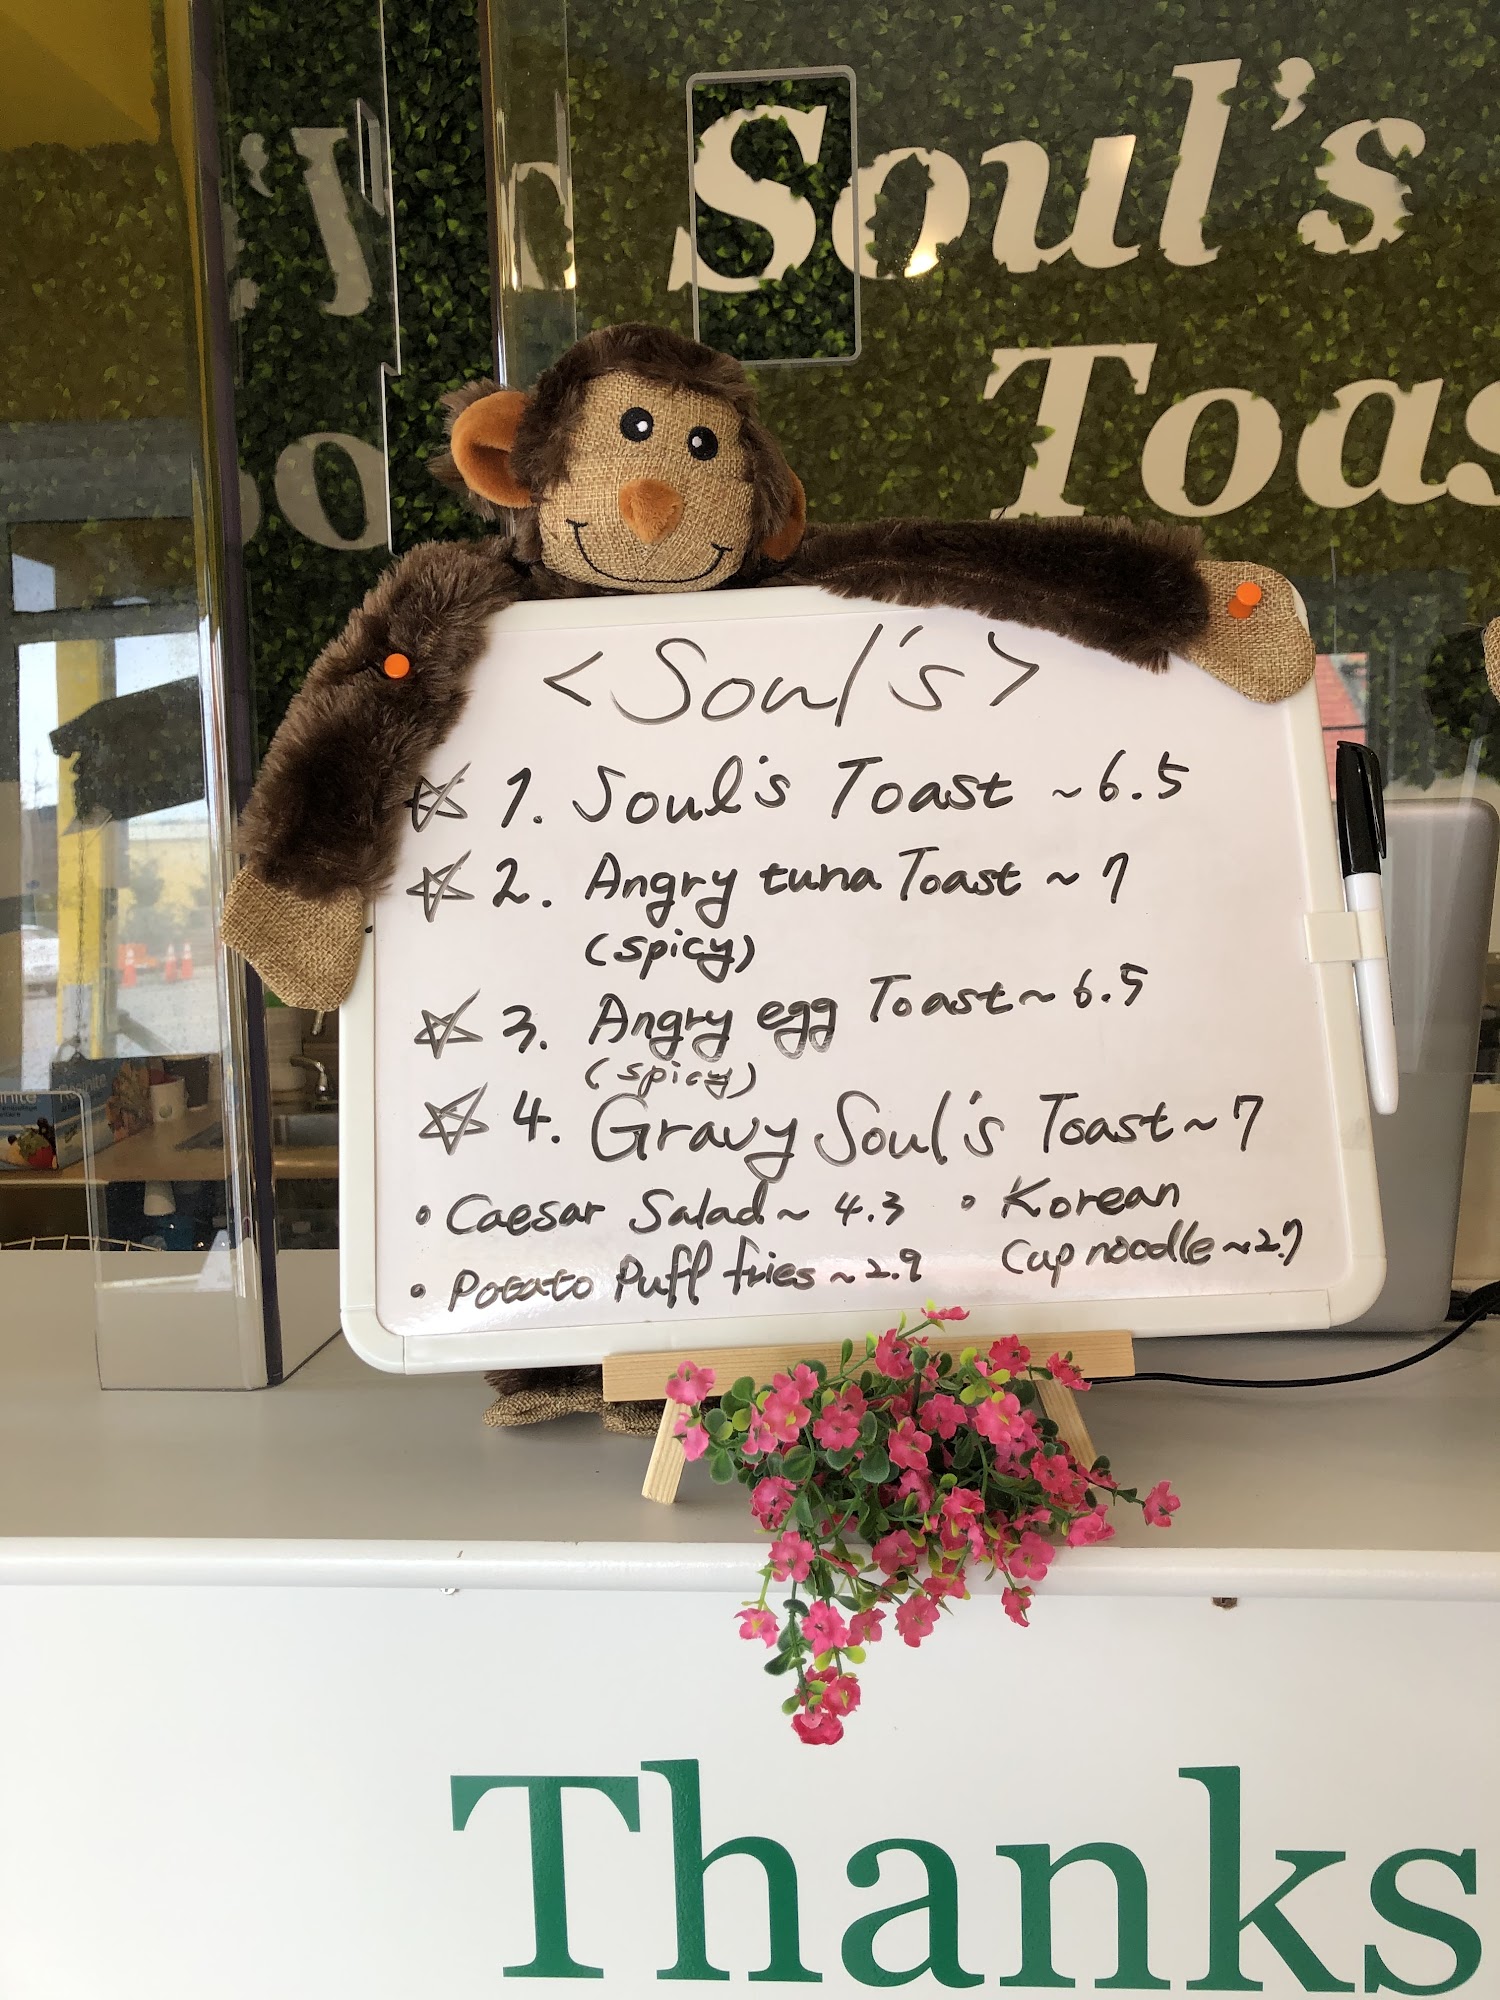 Soul's
Toas
<Soul's>
☆ 1. Soul's Toast ~6.5
☆ 2. Angry tuna Toast ~ 7
(spicy)
☆ 3. Angry egg Toast ~ 6.5
(spicy)
☆ 4. Gravy Soul's Toast ~ 7
• Caesar Salad ~ 4.3
• Potato Puff fries ~2.9
• Korean
Cup noodle ~2.7
Thanks